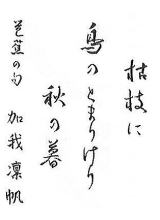 枯枝に
鳥のとまりけり
秋の暮
芭蕉の句 加我凜帆